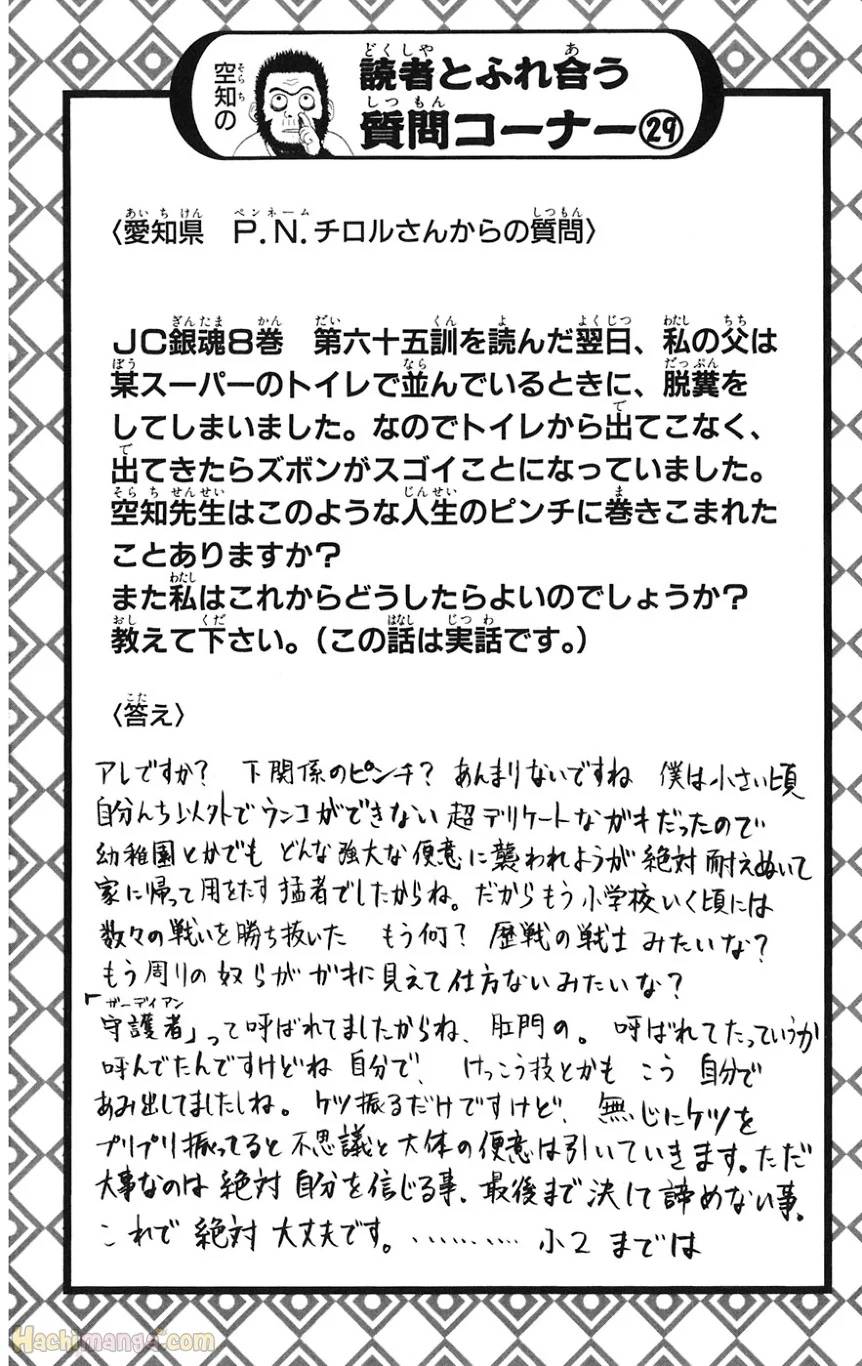 空知の
読者とふれ合う
質問コーナー㉙
〈愛知県　P.N.チロルさんからの質問〉
JC銀魂8巻　第六十五訓を読んだ翌日、私の父は
某スーパーのトイレで並んでいるときに、脱糞を
してしまいました。なのでトイレから出てこなく、
出てきたらズボンがスゴイことになっていました。
空知先生はこのような人生のピンチに巻きこまれた
ことありますか？
また私はこれからどうしたらよいのでしょうか？
教えて下さい。（この話は実話です。）
〈答え〉
アレですか？　下関係のピンチ？　あんまりないですね　僕は小さい頃
自分んち以外でウンコができない超デリケートなガキだったので
幼稚園とかでも どんな強大な便意に襲われようが絶対耐えぬいて
家に帰って用をたす猛者でしたからね。だからもう小学校いく頃には
数々の戦いを勝ち抜いた　もう何？　歴戦の戦士みたいな？
もう周りの奴らがガキに見えて仕方ないみたいな？
「守護者」って呼ばれてましたからね、肛門の。　呼ばれてたっていうか
呼んでたんですけどね 自分で、　けっこう技とかも こう 自分で
あみ出してましたしね。ケツ振るだけですけど、無じにケツを
プリプリ振ってると不思議と大体の便意は引いていきます。ただ
大事なのは絶対自分を信じる事、最後まで決して諦めない事。
これで絶対大丈夫です。…………小2までは
Hachimanga.com